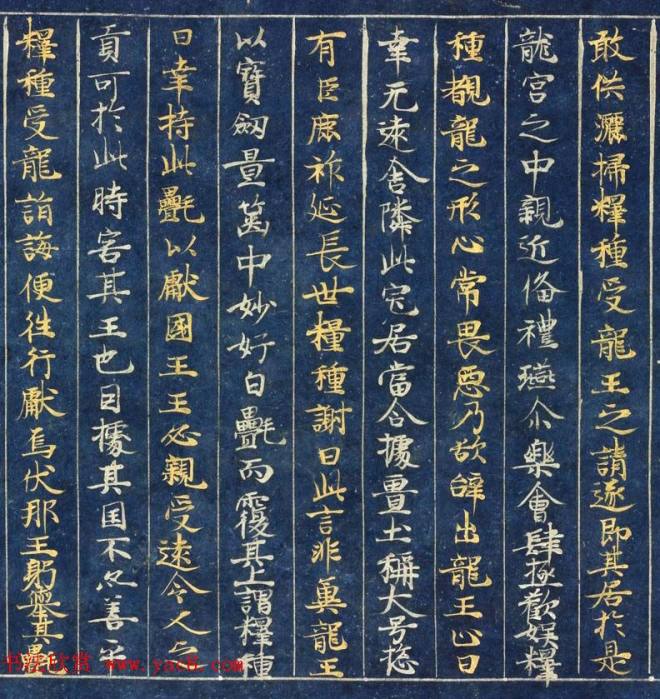 敢供灑掃釋種受龍王之請遂即其居於是
龍宮之中親迎俻禮燕尒樂會肆極歡娛釋
種覩龍之形心常畏惡乃欲辭出龍王止曰
幸无遠舍隣此宅居當令據畺土稱大号揔
有臣庶祚延長世釋種謝曰此言非冀龍王
以寶劒置篋中妙好白㲲而覆其上謂釋種
曰幸持此㲲以獻國王王必親受遠人之
貢可於此時害其王也因據其国不亦善乎
釋種受龍指誨便往行獻烏伏那王躬舉其㲲
书法欣赏 www.yac8.com